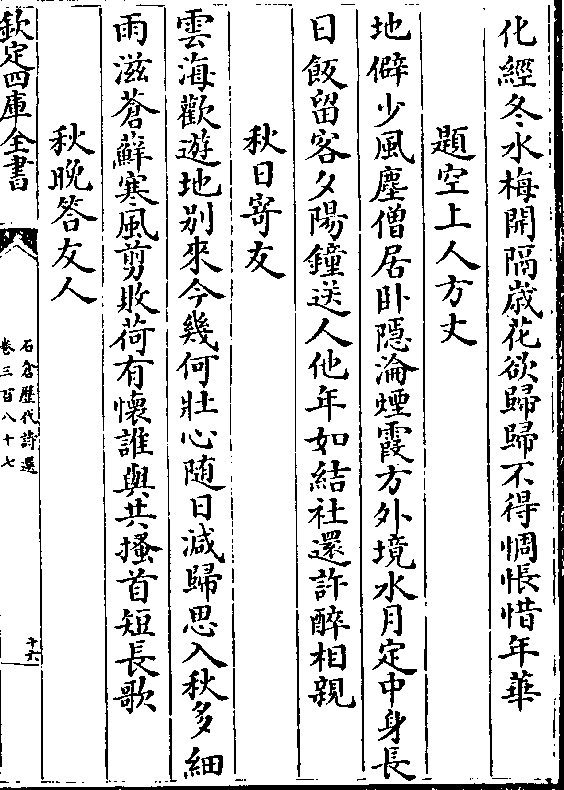 化經冬水梅開隔歳花欲歸歸不得惆悵惜年華
題空上人方丈
地僻少風塵僧居卧隱淪煙霞方外境水月定中身長
日飯留客夕陽鐘送人他年如結社還許醉相親
秋日寄友
雲海歡遊地别來今幾何壯心随日減歸思入秋多細
雨滋蒼蘚寒風剪敗荷有懷誰與共搔首短長歌
秋晚答友人
欽定四庫全書
石倉歴代詩選
卷三百八十七
十六